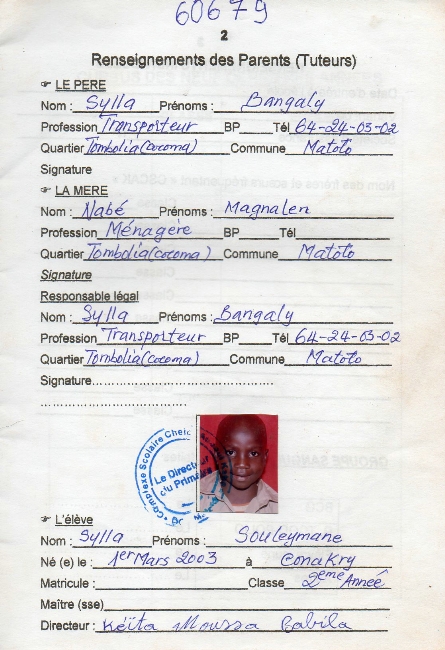 60679
2
Renseignements des Parents (Tuteurs)
☞ LE PERE
Nom : Sylla Prénoms : Bangaly
Profession Transporteur BP____ Tél 64-24-03-02
Quartier Tombolia (cocoma) Commune Matoto
Signature
☞ LA MERE
Nom : Nabé Prénoms : Magnalen
Profession Ménagère BP____ Tél____
Quartier Tombolia (cocoma) Commune Matoto
Signature
Responsable légal
Nom : Sylla Prénoms : Bangaly
Profession Transporteur BP____ Tél 64-24-03-02
Quartier Tombolia (cocoma) Commune Matoto
Signature....................................................
..........................................
Complexe Scolaire Cheic
Le Directeur
du Primaire
☞ L'élève
Nom : Sylla Prénoms : Souleymane
Né (e) le : 1er Mars 2003 à Conakry
Matricule : ____ Classe 2eme Année
Maître (sse)____
Directeur : Kéïta Moussa Babila